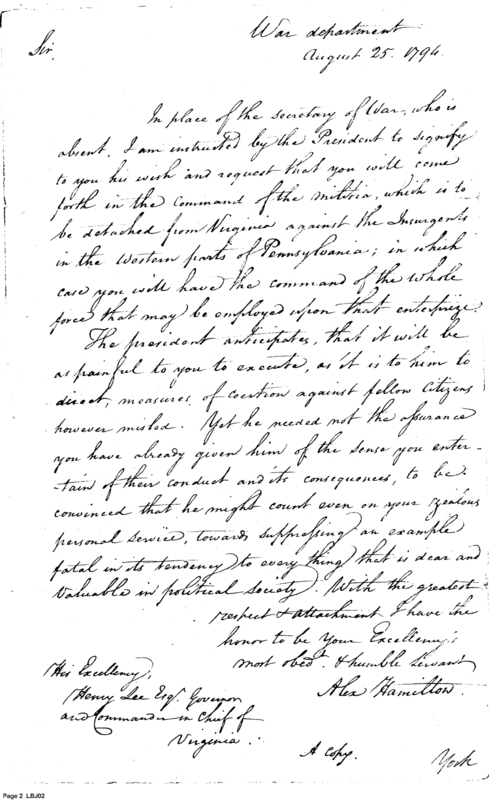 War department
August 25. 1794.
Sir,
In place of the secretary of War, who is
absent, I am instructed by the President to signify
to you his wish and request that you will come
forth in the command of the militia, which is to
be detached from Virginia against the Insurgents
in the Western parts of Pennsylvania; in which
case you will have the command of the whole
force that may be employed upon that enterprize.
The president anticipates, that it will be
as painful to you to execute, as it is to him to
direct, measures of coertion against fellow Citizens
however misled. Yet he needed not the assurance
you have already given him of the sense you enter-
-tain of their conduct and its consequences, to be
convinced that he might count even on your zealous
personal service, towards suppressing an example
fatal in its tendency to every thing that is dear and
valuable in political society. With the greatest
respect & attachment I have the
honor to be Your Excellency's
most obed.t & humble Servant
Alex Hamilton.
His Excellency,
Henry Lee Esq.r Governor
and Commander in Chief of
Virginia.
A copy.
York
Page 2 LBJ02